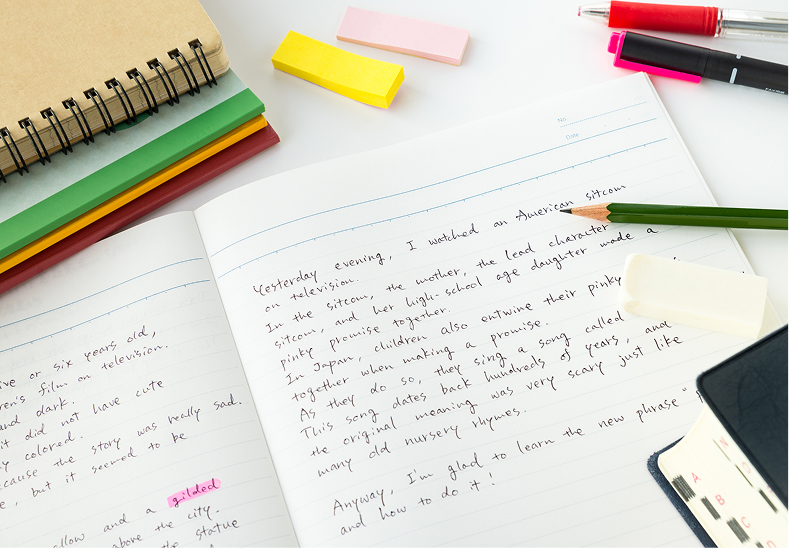 ive or six years old,
ren's film on television.
and dark.
it did not have cute
y colored.
ecause the story was really sad.
e, but it seemed to be
gilded
allow and a
above the city.
the statue
No.
Date
Yesterday evening, I watched an American sitcom
on television.
In the sitcom, the mother, the lead character
sitcom, and her high-school age daughter made a
pinky promise together.
In Japan, children also entwine their pinky
together when making a promise.
As they do so, they sing a song called
This song dates back hundreds of years, and
the original meaning was very scary just like
many old nursery rhymes.
Anyway, I'm glad to learn the new phrase "
and how to do it!
A
B
C